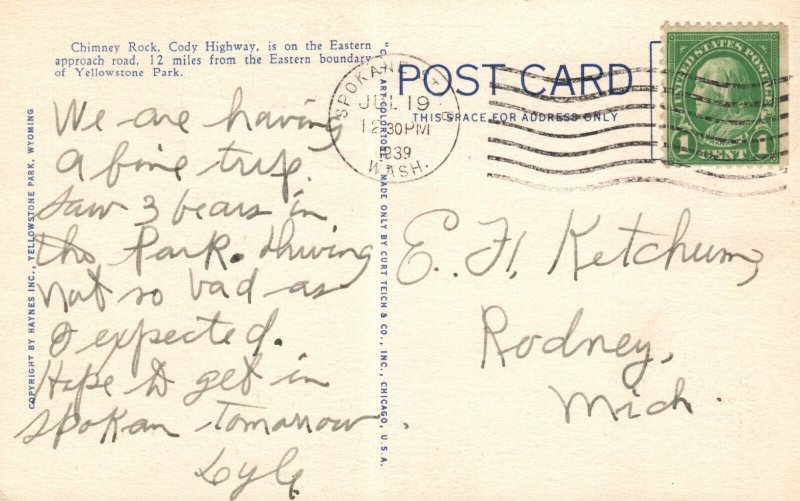 Chimney Rock, Cody Highway, is on the Eastern
approach road, 12 miles from the Eastern boundary
of Yellowstone Park.
We are having
a fine trip.
Saw 3 bears in
the Park. Driving
not so bad as
I expected.
Hope to get in
Spokan Tomorrow
Lyle
COPYRIGHT BY HAYNES INC., YELLOWSTONE PARK, WYOMING
"C. T. ART-COLORTONE" MADE ONLY BY CURT TEICH & CO., INC., CHICAGO, U.S.A.
POST CARD
THIS SPACE FOR ADDRESS ONLY
SPOKANE
JUL 19
12 30 PM
1939
WASH.
UNITED STATES POSTAGE
1 CENT 1
E. H. Ketchum,
Rodney,
Mich.